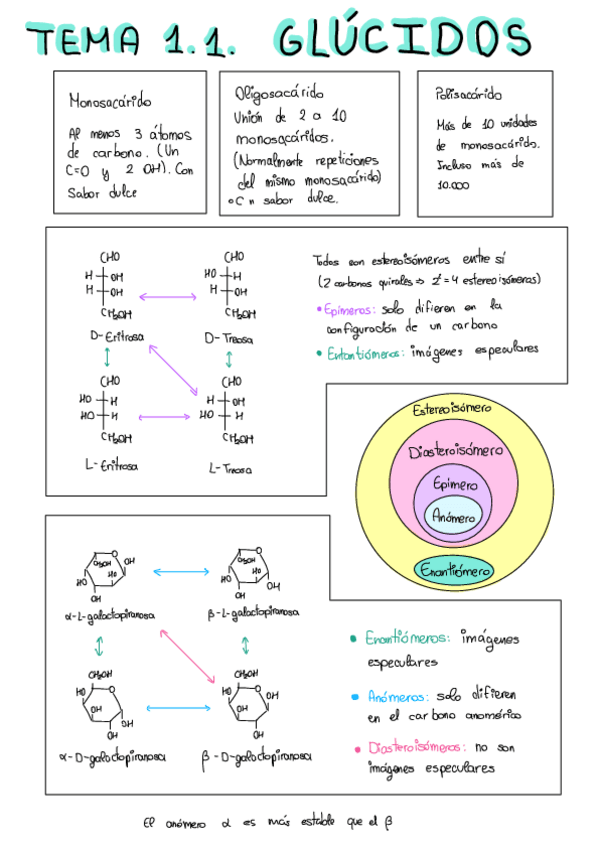 TEMA 1.1. GLÚCIDOS
Monosacárido
Al menos 3 átomos
de carbono. (Un
C=O y 2 OH). Con
Sabor dulce
Oligosacárido
Unión de 2 a 10
monosacáridos.
(Normalmente repeticiones
del mismo monosacárido)
Con sabor dulce.
Polisacárido
Más de 10 unidades
de monosacárido.
Incluso más de
10.000
CHO
H OH
H OH
CH₂OH
D-Eritrosa
CHO
HO H
H OH
CH₂OH
D-Treosa
CHO
HO H
HO H
CH₂OH
L-Eritrosa
CHO
H OH
HO H
CH₂OH
L-Treosa
Todos son estereoisómeros entre sí
(2 carbonos quirales => 2² = 4 estereoisómeros)
• Epímeros: solo difieren en la
configuración de un carbono
• Enantiómeros: imágenes especulares
Estereoisómero
Diasteroisómero
Epímero
Anómero
Enantiómero
O
CH₂OH
OH
HO
HO
OH
α-L-galactopiranosa
O
CH₂OH
HO
HO
OH
OH
β-L-galactopiranosa
CH₂OH
HO
O
OH
OH
OH
α-D-galactopiranosa
CH₂OH
HO
O
OH
OH
OH
β-D-galactopiranosa
• Enantiómeros: imágenes
especulares
• Anómeros: solo difieren
en el carbono anomérico
• Diasteroisómeros: no son
imágenes especulares
El anómero α es más estable que el β